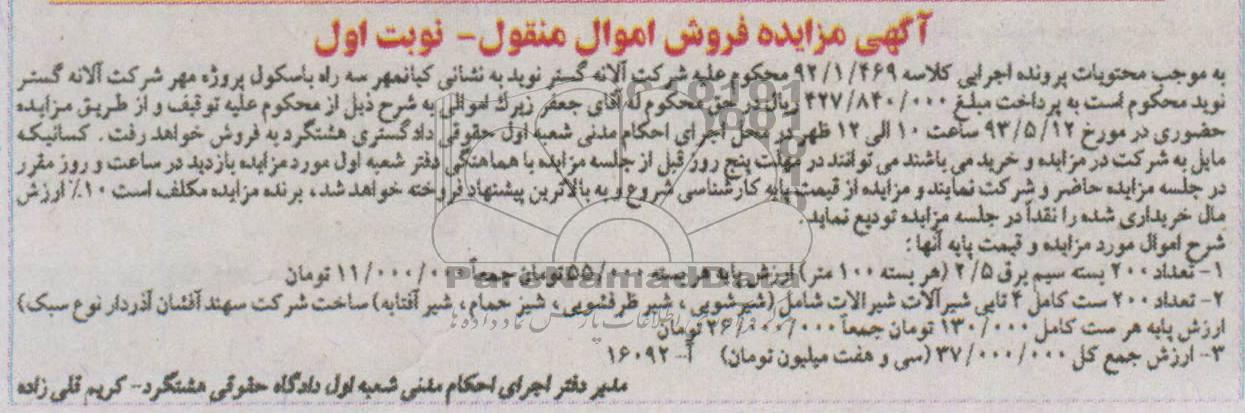 آگهی مزایده فروش اموال منقول - نوبت اول
به موجب محتویات پرونده اجرایی کلاسه ۹۲/۱/۴۶۹ محکوم علیه شرکت آلانه گستر نوید به نشانی کیانمهر سه راه باسکول پروژه مهر شرکت آلانه گستر
نوید محکوم است به پرداخت مبلغ ۴۲۷/۸۴۰/۰۰۰ ریال در حق محکوم له آقای جعفر زیرک اموالی به شرح ذیل از محکوم علیه توقیف و از طریق مزایده
حضوری در مورخ ۹۳/۵/۱۲ ساعت ۱۰ الی ۱۲ ظهر در محل اجرای احکام مدنی شعبه اول حقوقی دادگستری هشتگرد به فروش خواهد رفت. کسانیکه
مایل به شرکت در مزایده و خرید می باشند می توانند در مهلت پنج روز قبل از جلسه مزایده با هماهنگی دفتر شعبه اول مورد مزایده بازدید در ساعت و روز مقرر
در جلسه مزایده حاضر و شرکت نمایند و مزایده از قیمت پایه کارشناسی شروع و به بالاترین پیشنهاد فروخته خواهد شد، برنده مزایده مکلف است ۱۰٪ ارزش
مال خریداری شده را نقداً در جلسه مزایده تودیع نماید.
شرح اموال مورد مزایده و قیمت پایه آنها:
۱- تعداد ۲۰۰ بسته سیم برق ۲/۵ (هر بسته ۱۰۰ متر) ارزش پایه هر بسته ۵۵/۰۰۰ تومان جمعاً ۱۱/۰۰۰/۰۰۰ تومان
۲- تعداد ۲۰۰ ست کامل ۴ تایی شیرآلات شیرالات شامل (شیرشویی، شیر ظرفشویی، شیر حمام، شیر آفتابه) ساخت شرکت سهند آفشان آذر دار نوع سبک)
ارزش پایه هر ست کامل ۱۳۰/۰۰۰ تومان جمعاً ۲۶/۰۰۰/۰۰۰ تومان
۳- ارزش جمع کل ۳۷/۰۰۰/۰۰۰ (سی و هفت میلیون تومان) آ- ۱۶۰۹۲
مدیر دفتر اجرای احکام مدنی شعبه اول دادگاه حقوقی هشتگرد - کریم قلی زاده
ParsNamadData